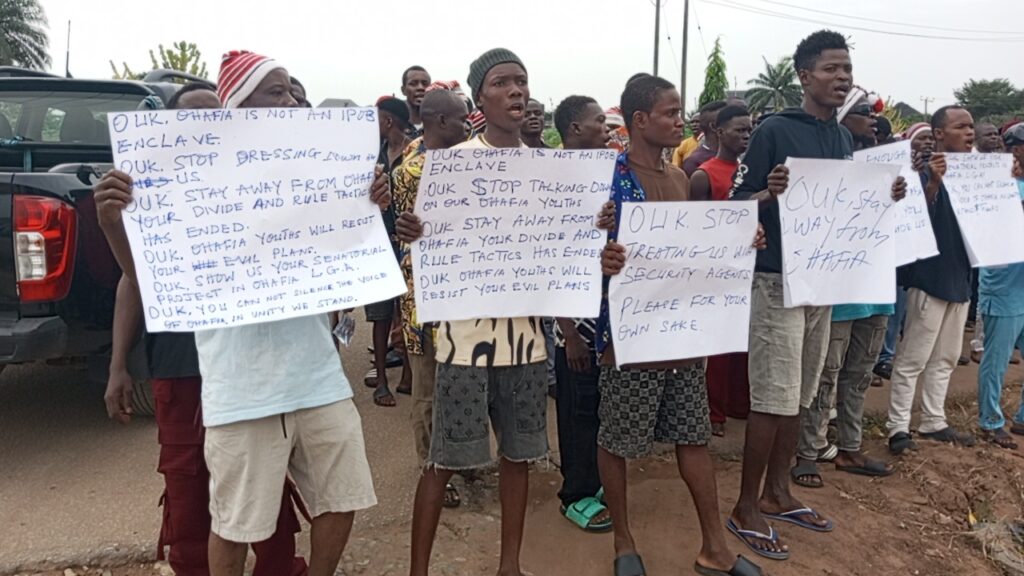 OUK. OHAFIA IS NOT AN IPOB
ENCLAVE.
OUK. STOP DRESSING DOWN
US.
OUK. STAY AWAY FROM OHAFIA
YOUR DIVIDE AND RULE TACTICS
HAS ENDED.
OUK. OHAFIA YOUTHS WILL RESIST
YOUR EVIL PLANS.
OUK, SHOW US YOUR SENATORIAL
PROJECT IN OHAFIA L.G.A.
OUK, YOU CAN NOT SILENCE THE VOICE
OF OHAFIA, IN UNITY WE STAND.
OUK OHAFIA IS NOT AN IPOB
ENCLAVE
OUK STOP TALKING DOWN
ON OUR OHAFIA YOUTHS
OUK STAY AWAY FROM
OHAFIA YOUR DIVIDE AND
RULE TACTICS HAS ENDED
OUK OHAFIA YOUTHS WILL
RESIST YOUR EVIL PLANS
OUK. STOP
TREATING US WITH
SECURITY AGENTS
PLEASE FOR YOUR
OWN SAKE.
OUK, stay
AWAY from
OHAFIA
ENOUGH